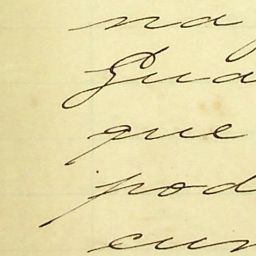 na
Gua
que
pod
cun